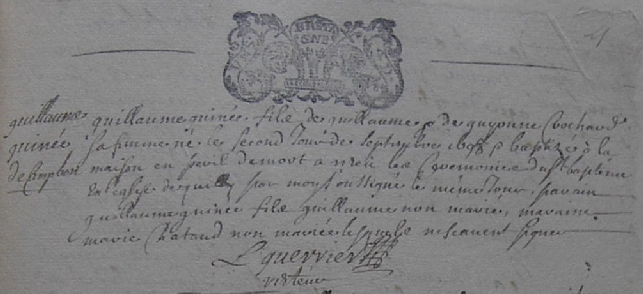 BRETA
GNE
guillaume guillaume quinée fils de guillaume & de guyonne
quinée sa femme né le second Jour de Septembre & baptizé a la
maison en peril de mort a receu les Ceremonies du baptême
En leglise de par moy soussigné le mesme Jour, parain
guillaume quinée fils guillaume non mariés, maraine
marie Chataud non mariée lesquels ne scavent signer
L guerrier